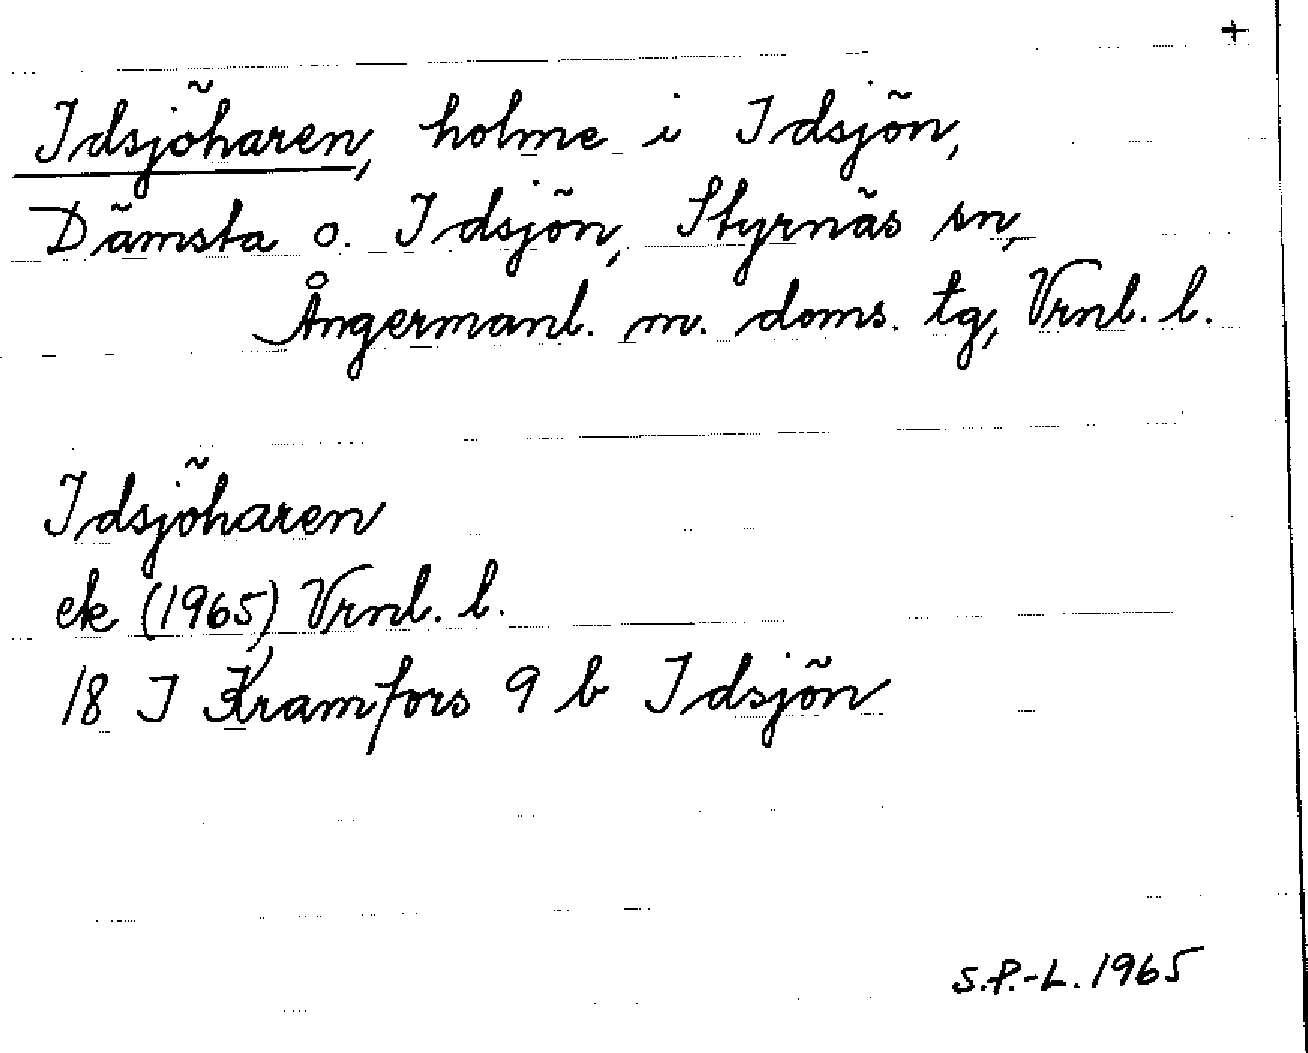 +
Idsjöharen, holme i Idsjön,
Dämsta o. Idsjön, Styrnäs sn,
Ångermanl. m. doms. tg, Vrnl. l.
Idsjöharen
ek (1965) Vrnl. l.
18 I Kramfors 9 b Idsjön
S.P.-L. 1965